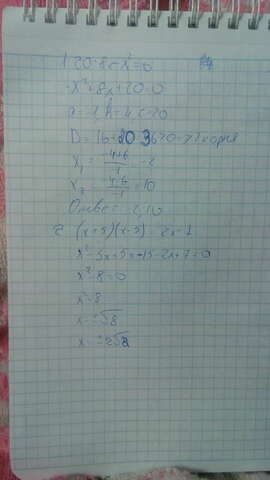 1 20+8x-x²=0
-x²+8x+20=0
a=-1, k=4, c=20
D=16+20=36>0-2 корня
x₁ = (-4+6)/-1 = -2
x₂ = (-4-6)/-1 = 10
Ответ: -2; 10
2 (x+5)(x-3)=2x-7
x²-3x+5x-15-2x+7=0
x²-8=0
x²=8
x=±√8
x=±2√2